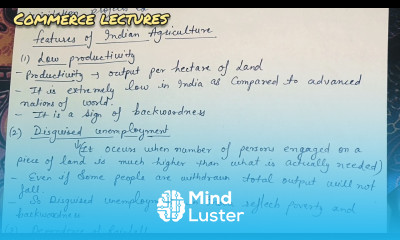 Commerce lectures
features of Indian Agriculture
(1) Low productivity
- Productivity → output per hectare of Land
- It is extremely low in India as Compared to advanced
nations of world.
- It is a sign of backwardness
(2) Disguised unemployment
(It occurs when number of persons engaged on a
piece of land is much higher than what is actually needed)
- Even if Some people are withdrawn total output will not
fall
- So Disguised unemploym reflect poverty and
backwardness
Mind
Luster